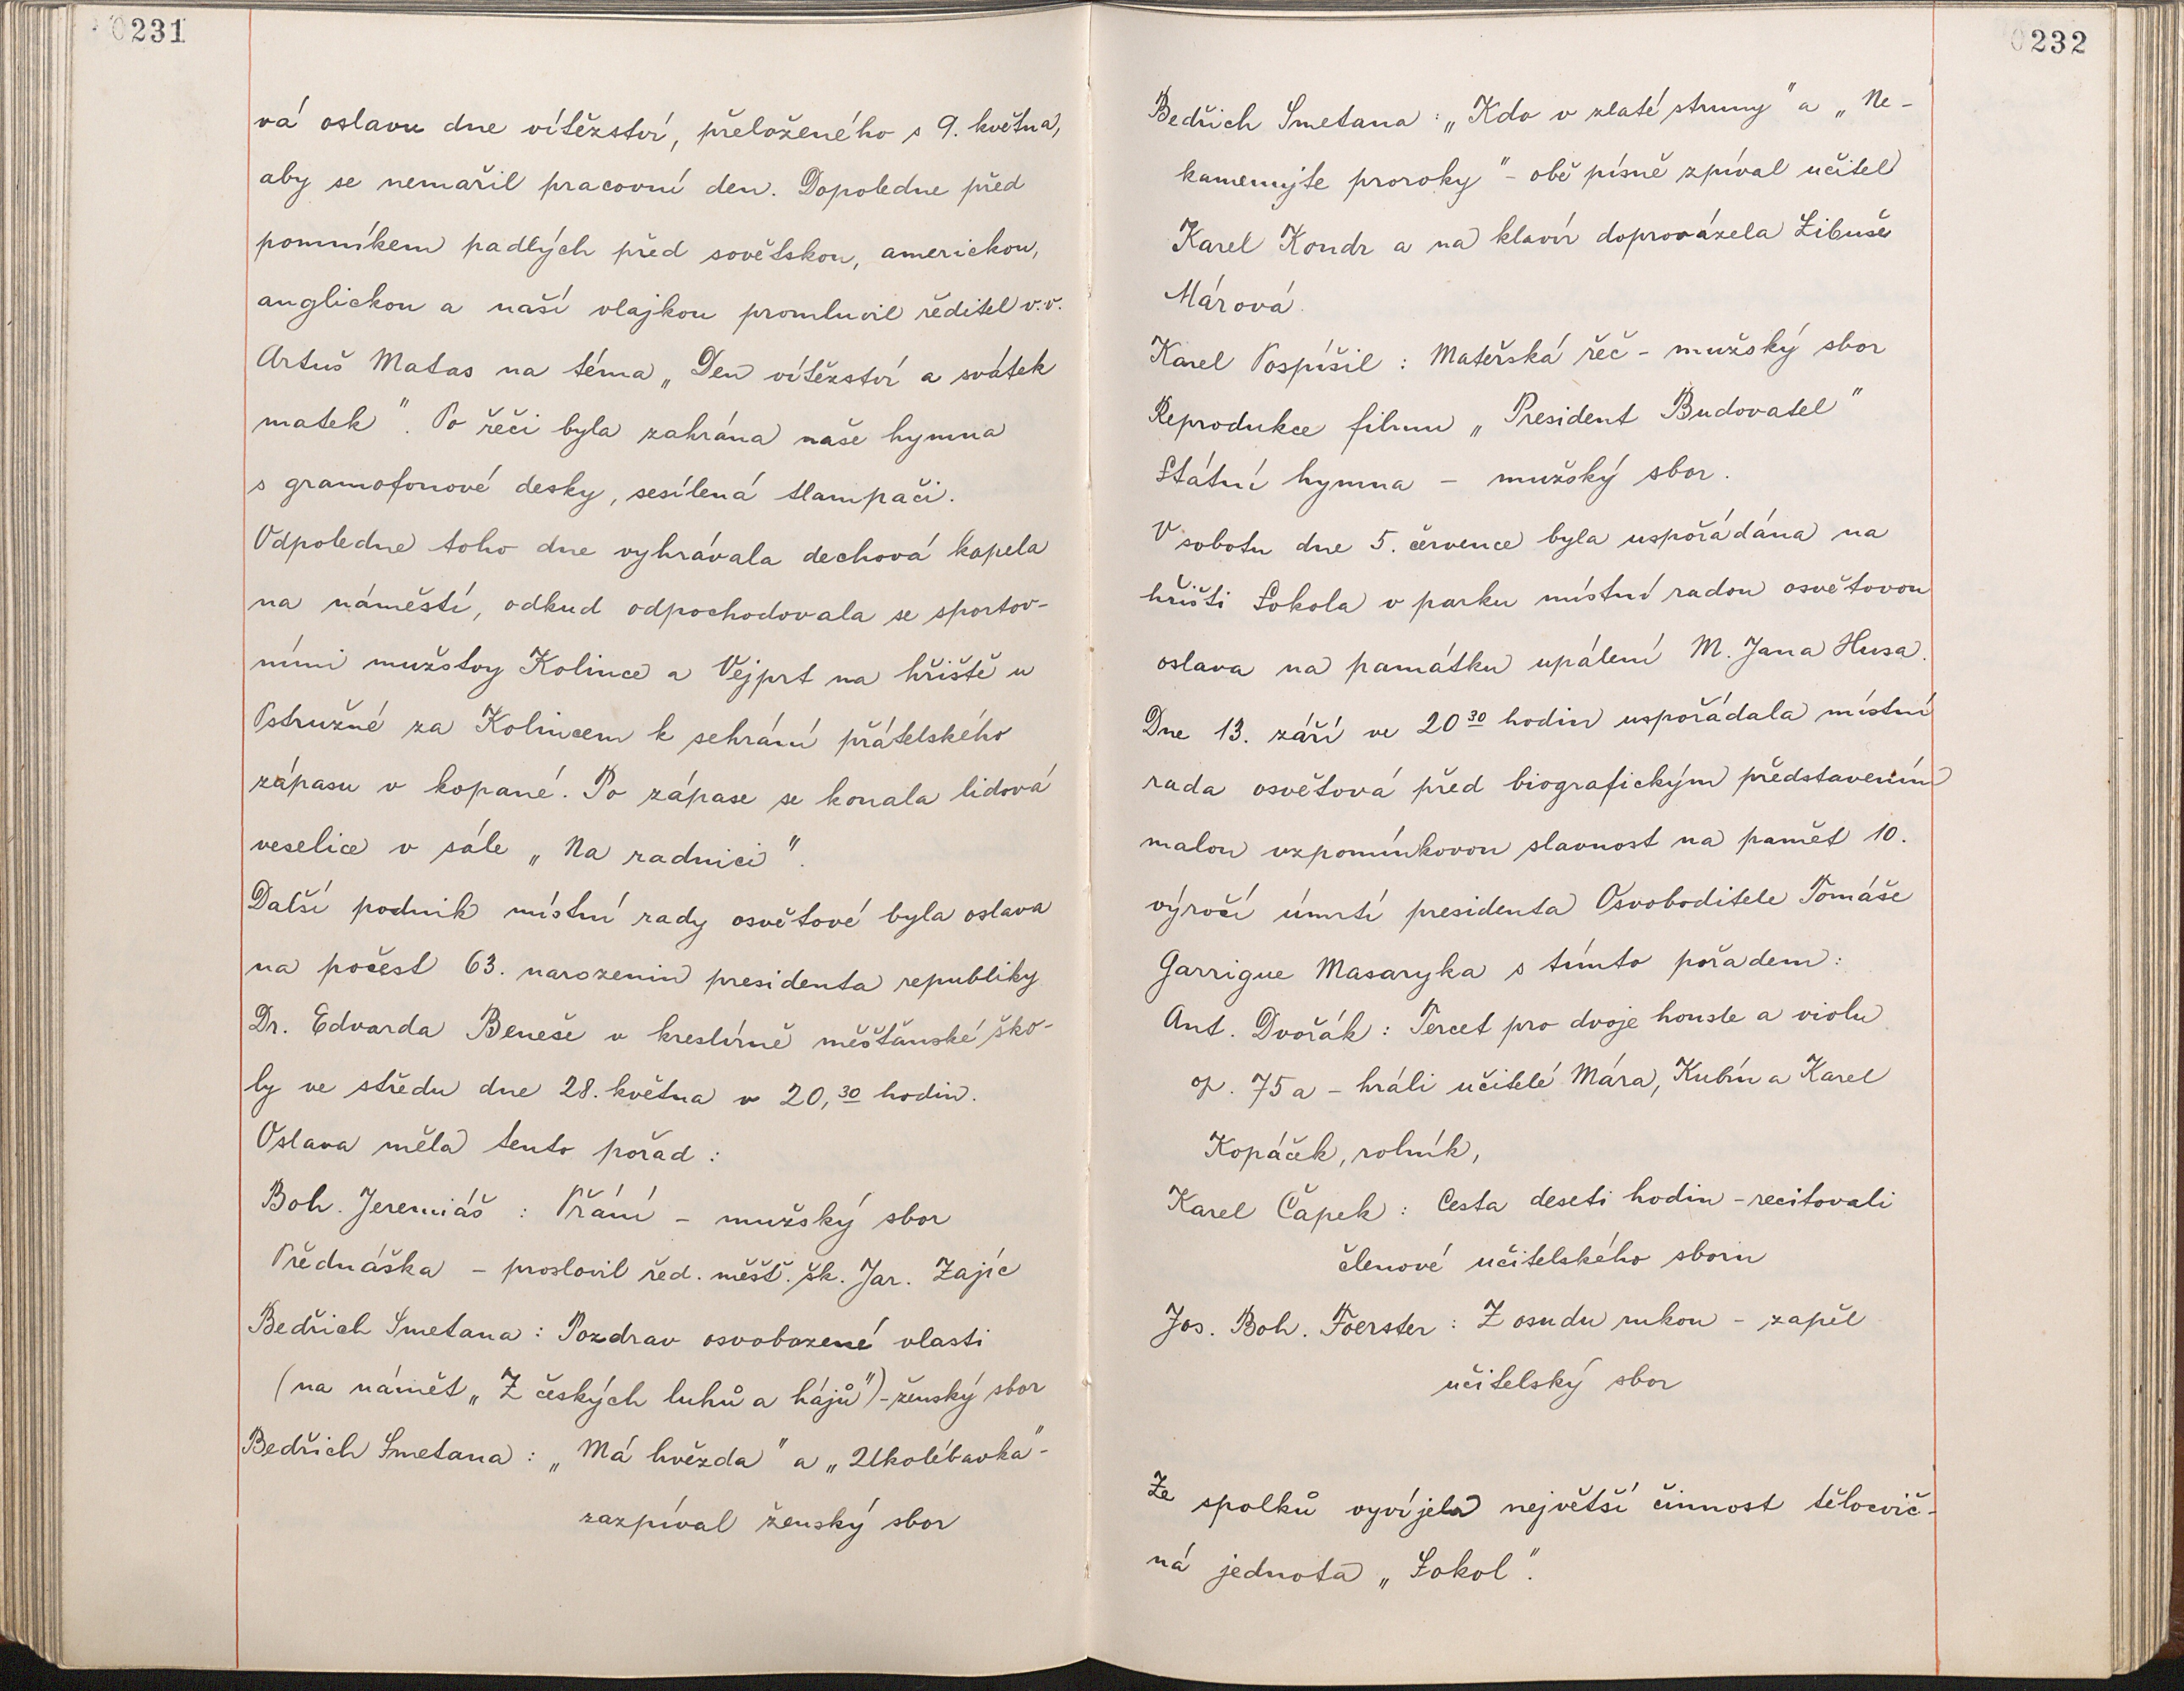 0231
vá oslavu dne vítězství, přeloženého s 9. května,
aby se nemařil pracovní den. Dopoledne před
pomníkem padlých před sovětskou, americkou,
anglickou a naší vlajkou promluvil ředitel v.v.
Artuš Matas na téma „Den vítězství a svátek
matek". Po řeči byla zahrána naše hymna
s gramofonové desky, sesílená tlampači.
Odpoledne toho dne vyhrávala dechová kapela
na náměstí, odkud odpochodovala se sportov-
ními mužstvy Kolince a Vejprt na hřiště u
Ostružné za Kolincem k sehrání přátelského
zápasu v kopané. Po zápase se konala lidová
veselice v sále „Na radnici".
Další podnik místní rady osvětové byla oslava
na počest 63. narozenin presidenta republiky
Dr. Edvarda Beneše v kreslírně měšťanské ško-
ly ve středu dne 28. května v 20,30 hodin.
Oslava měla tento pořad:
Boh. Jeremiáš: Přání - mužský sbor
Přednáška - proslovil řed. měšť. šk. Jar. Zajíc
Bedřich Smetana: Pozdrav osvobozené vlasti
(na námět „Z českých luhů a hájů") - ženský sbor
Bedřich Smetana: „Má hvězda" a „Ukolébavka"-
zazpíval ženský sbor
0232
Bedřich Smetana: „Kdo v zlaté struny" a „Ne-
kamenujte proroky" - obě písně zpíval učitel
Karel Kondr a na klavír doprovázela Libuše
Márová.
Karel Pospíšil: Mateřská řeč - mužský sbor
Reprodukce filmu „President Budovatel"
Státní hymna - mužský sbor.
V sobotu dne 5. července byla uspořádána na
hřišti Sokola v parku místní radou osvětovou
oslava na památku upálení M. Jana Husa.
Dne 13. září ve 20 30 hodin uspořádala místní
rada osvětová před biografickým představením
malou vzpomínkovou slavnost na pamět 10.
výročí úmrtí presidenta Osvoboditele Tomáše
Garrigue Masaryka s tímto pořadem:
Ant. Dvořák: Tercet pro dvoje housle a violu
op. 75a - hráli učitelé Mára, Kubín a Karel
Kopáček, rolník,
Karel Čapek: Cesta deseti hodin - recitovali
členové učitelského sboru
Jos. Boh. Foerster: Z osudu rukou - zapěl
učitelský sbor
Ze spolků vyvíjela největší činnost tělocvič-
ná jednota „Sokol".